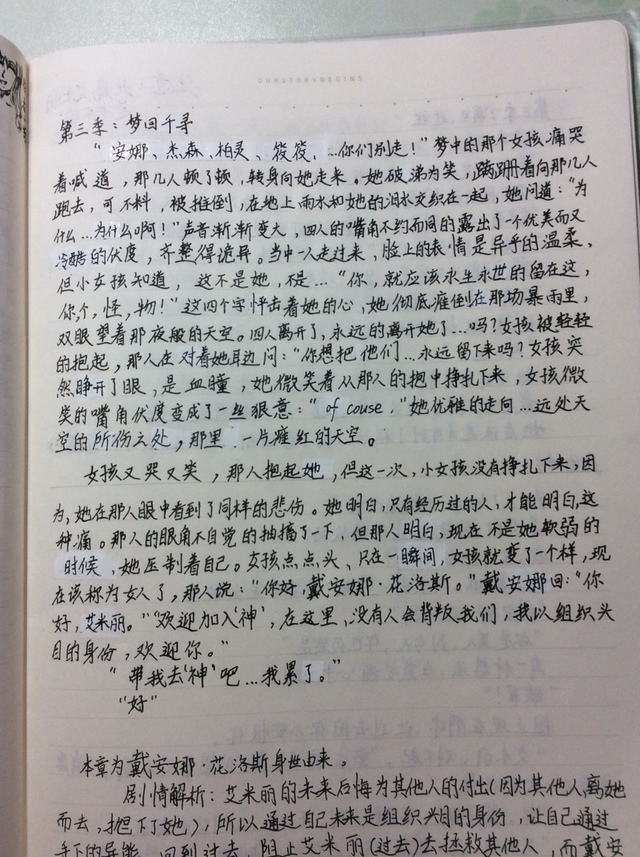 OURSTORYBEGINS
第三季：梦回千寻
“安娜、杰森、柏灵、筱筱、…你们别走！”梦中的那个女孩痛哭
着喊道，那几人顿了顿，转身向她走来。她破涕为笑，蹒跚着向那几人
跑去，可不料，被推倒，在地上雨水和她的泪水交织在一起，她问道：“为
什么…为什么啊！”声音渐渐变大，四人的嘴角不约而同的露出了一个优美而又
冷酷的伏度，齐整得诡异。当中一人走过来，脸上的表情是异乎的温柔，
但小女孩知道，这不是她，不是…“你，就应该永生永世的留在这，
你，个，怪，物！”这四个字怦击着她的心，她彻底瘫倒在那场暴雨里，
双眼望着那夜般的天空。四人离开了，永远的离开她了…吗？女孩被轻轻
的抱起，那人在对着她耳边问：“你想把他们…永远留下来吗？女孩突
然睁开了眼，是血瞳，她微笑着从那人的抱中挣扎下来，女孩微
笑的嘴角伏度变成了一丝狠意：“of couse．”她优雅的走向…远处天
空的所伤之处，那里，一片瘫红的天空。
女孩又哭又笑，那人抱起她，但这一次，小女孩没有挣扎下来，因
为，她在那人眼中看到了同样的悲伤。她明白，只有经历过的人，才能明白，这
种痛。那人的眼角不自觉的抽搐了一下，但那人明白，现在不是她软弱的
时候，她压制着自己。女孩点点头、只在一瞬间，女孩就变了一个样，现
在该称为女人了，那人说：“你好，戴安娜·花洛斯。”戴安娜回：“你
好，艾米丽。”“欢迎加入‘神’，在这里，没有人会背叛我们，我以组织头
目的身份，欢迎你。”
“带我去‘神’吧…我累了。”
“好”
本章为戴安娜·花洛斯身世由来。
剧情解析：艾米丽的未来后悔为其他人的付出（因为其他人离她
而去，抛下了她），所以通过自己未来是组织头目的身份，让自己通过
手下的异能，回到过去，阻止艾米丽（过去）去拯救其他人，而戴安